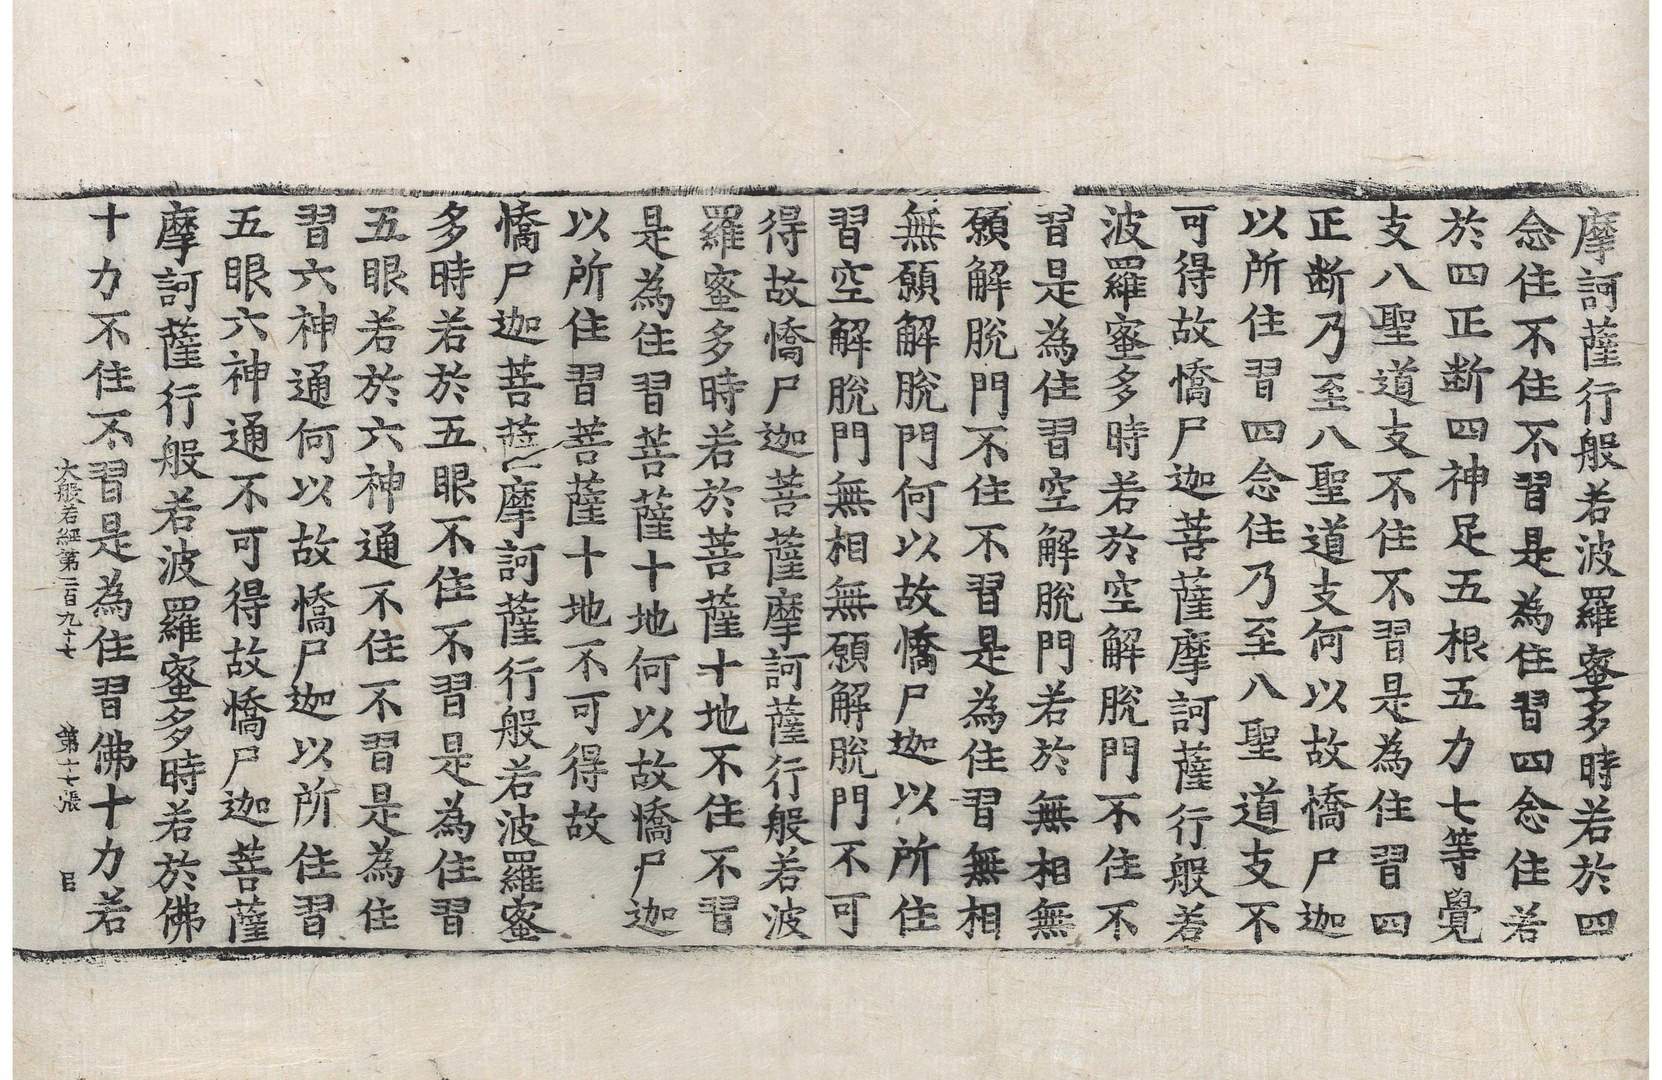 摩訶薩行般若波羅蜜多時若於四
念住不住不習是為住習四念住若
於四正断四神足五根五力七等覺
支八聖道支不住不習是為住習四
正断乃至八聖道支何以故憍尸迦
以所住習四念住乃至八聖道支不
可得故憍尸迦菩薩摩訶薩行般若
波羅蜜多時若於空解脫門不住不
習是為住習空解脫門若於無相無
願解脫門不住不習是為住習無相
無願解脫門何以故憍尸迦以所住
習空解脫門無相無願解脫門不可
得故憍尸迦菩薩摩訶薩行般若波
羅蜜多時若於菩薩十地不住不習
是為住習菩薩十地何以故憍尸迦
以所住習菩薩十地不可得故
憍尸迦菩薩摩訶薩行般若波羅蜜
多時若於五眼不住不習是為住習
五眼若於六神通不住不習是為住
習六神通何以故憍尸迦以所住習
五眼六神通不可得故憍尸迦菩薩
摩訶薩行般若波羅蜜多時若於佛
十力不住不習是為住習佛十力若
大般若經第二百九十七 第十七張 目